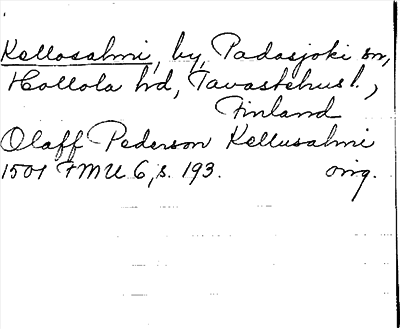 Kellosalmi, by, Padasjoki sn,
Hollola hd, Tavastehus l.,
Finland
Olaff Pederson Kellusalmi
1501 FMU 6, s. 193. orig.